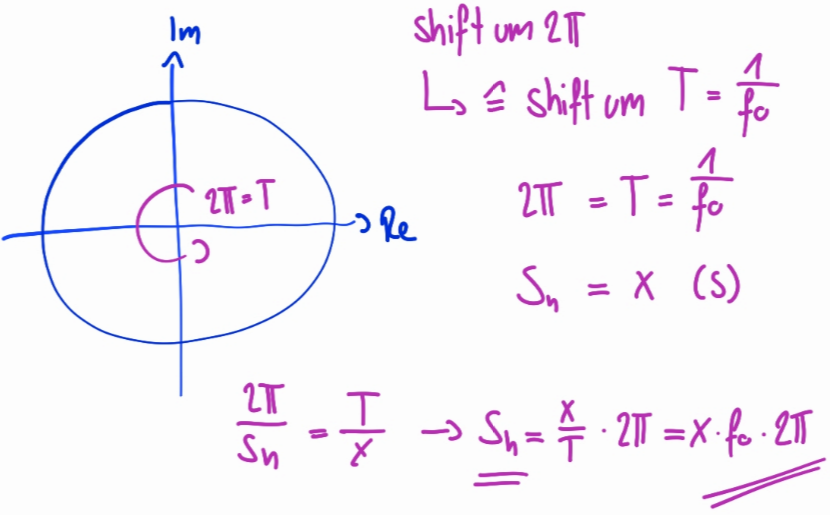 Im
shift um 2π
↳ ≙ shift um T = 1/f₀
2π = T
Re
2π = T = 1/f₀
Sₙ = x (s)
2π/Sₙ = T/x → Sₙ = x/T · 2π = x · f₀ · 2π